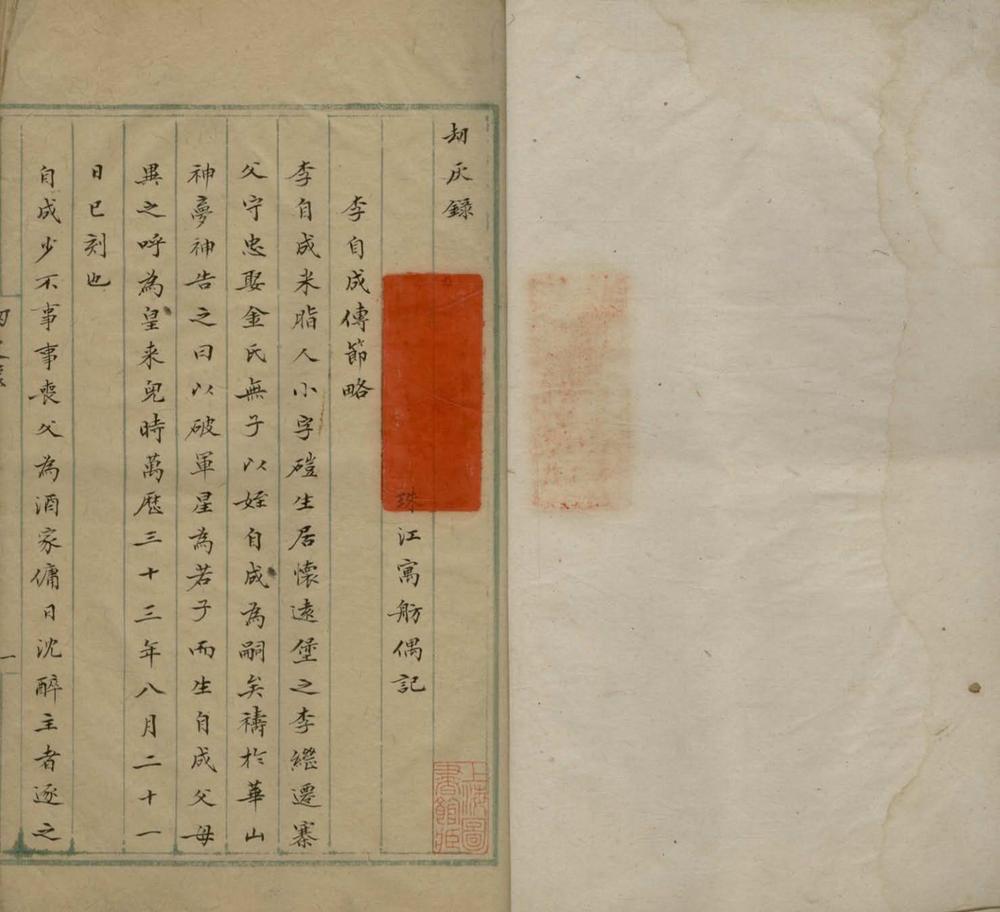 刼灰録
珠江寓舫偶記
李自成傳節略
李自成米脂人小字磑生居懷遠堡之李繼遷寨
父守忠娶金氏無子以姪自成為嗣矣禱於華山
神夢神告之曰以破軍星為若子而生自成父母
異之呼為皇来兒時萬歷三十三年八月二十一
日巳刻也
自成少不事事喪父為酒家傭日沈醉主者逐之
一
上海圖書館藏